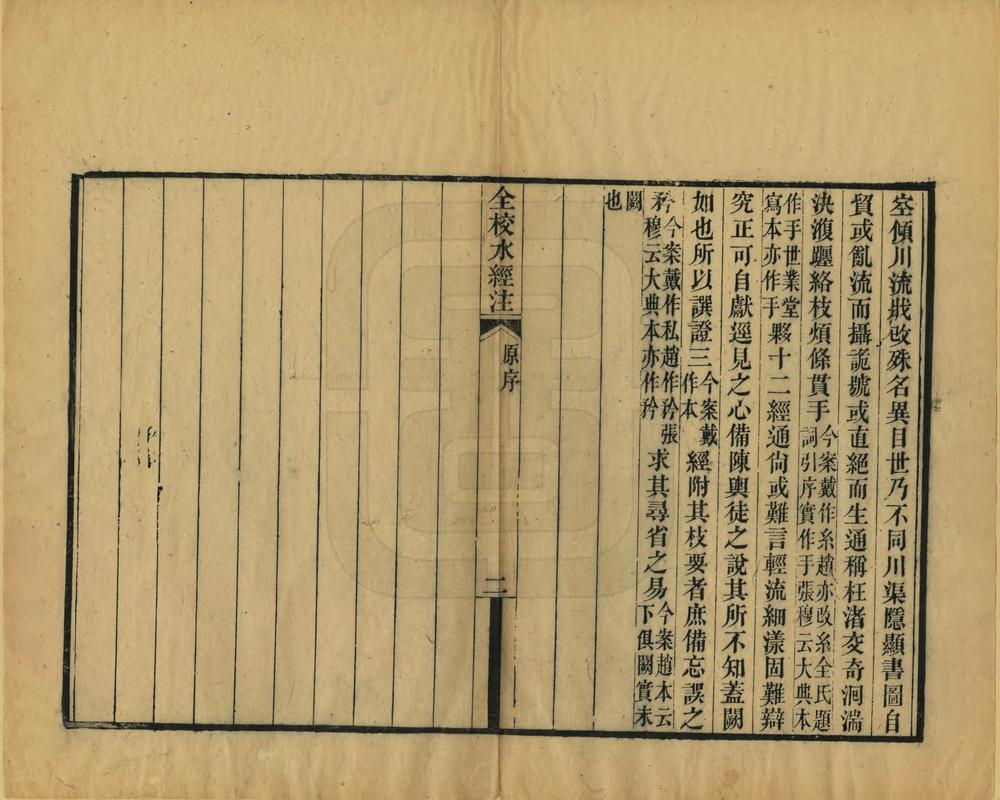 峑傾川流戕改殊名異目世乃不同川渠隱顯書圖自
貿或亂流而攝詭號或直絕而生通稱枉渚交奇洄湍
決澓躔絡枝煩條貫手今案戴作系趙亦改系全氏題
詞引序實作手張穆云大典本
作手世業堂
寫本亦作手夥十二經通尙或難言輕流細漾固難辯
究正可自獻逕見之心備陳輿徒之說其所不知蓋闕
如也所以譔證三今案戴
作本經附其枝要者庶備忘誤之
矜今案戴作私趙作矜張
穆云大典本亦作矜求其尋省之易今案趙本云
下俱闕實未
闕
也
全校水經注
原序
二